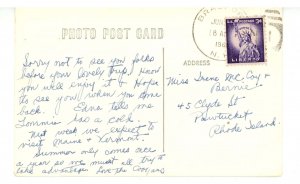 PHOTO POST CARD
Sorry not to see you folks
before your lovely trip, Know
you will enjoy it & Hope
to see you when you come
back. Edna tells me
has a cold.
Next week we expect to
visit Maine & Vermont.
Summer only comes once
a year so we must all try to
take advantage. Love the
ADDRESS
U.S. POSTAGE 3¢
LIBERTY
Miss Irene McCoy &
Bernie
45 Clyde St
Pawtucket
Rhode Island.